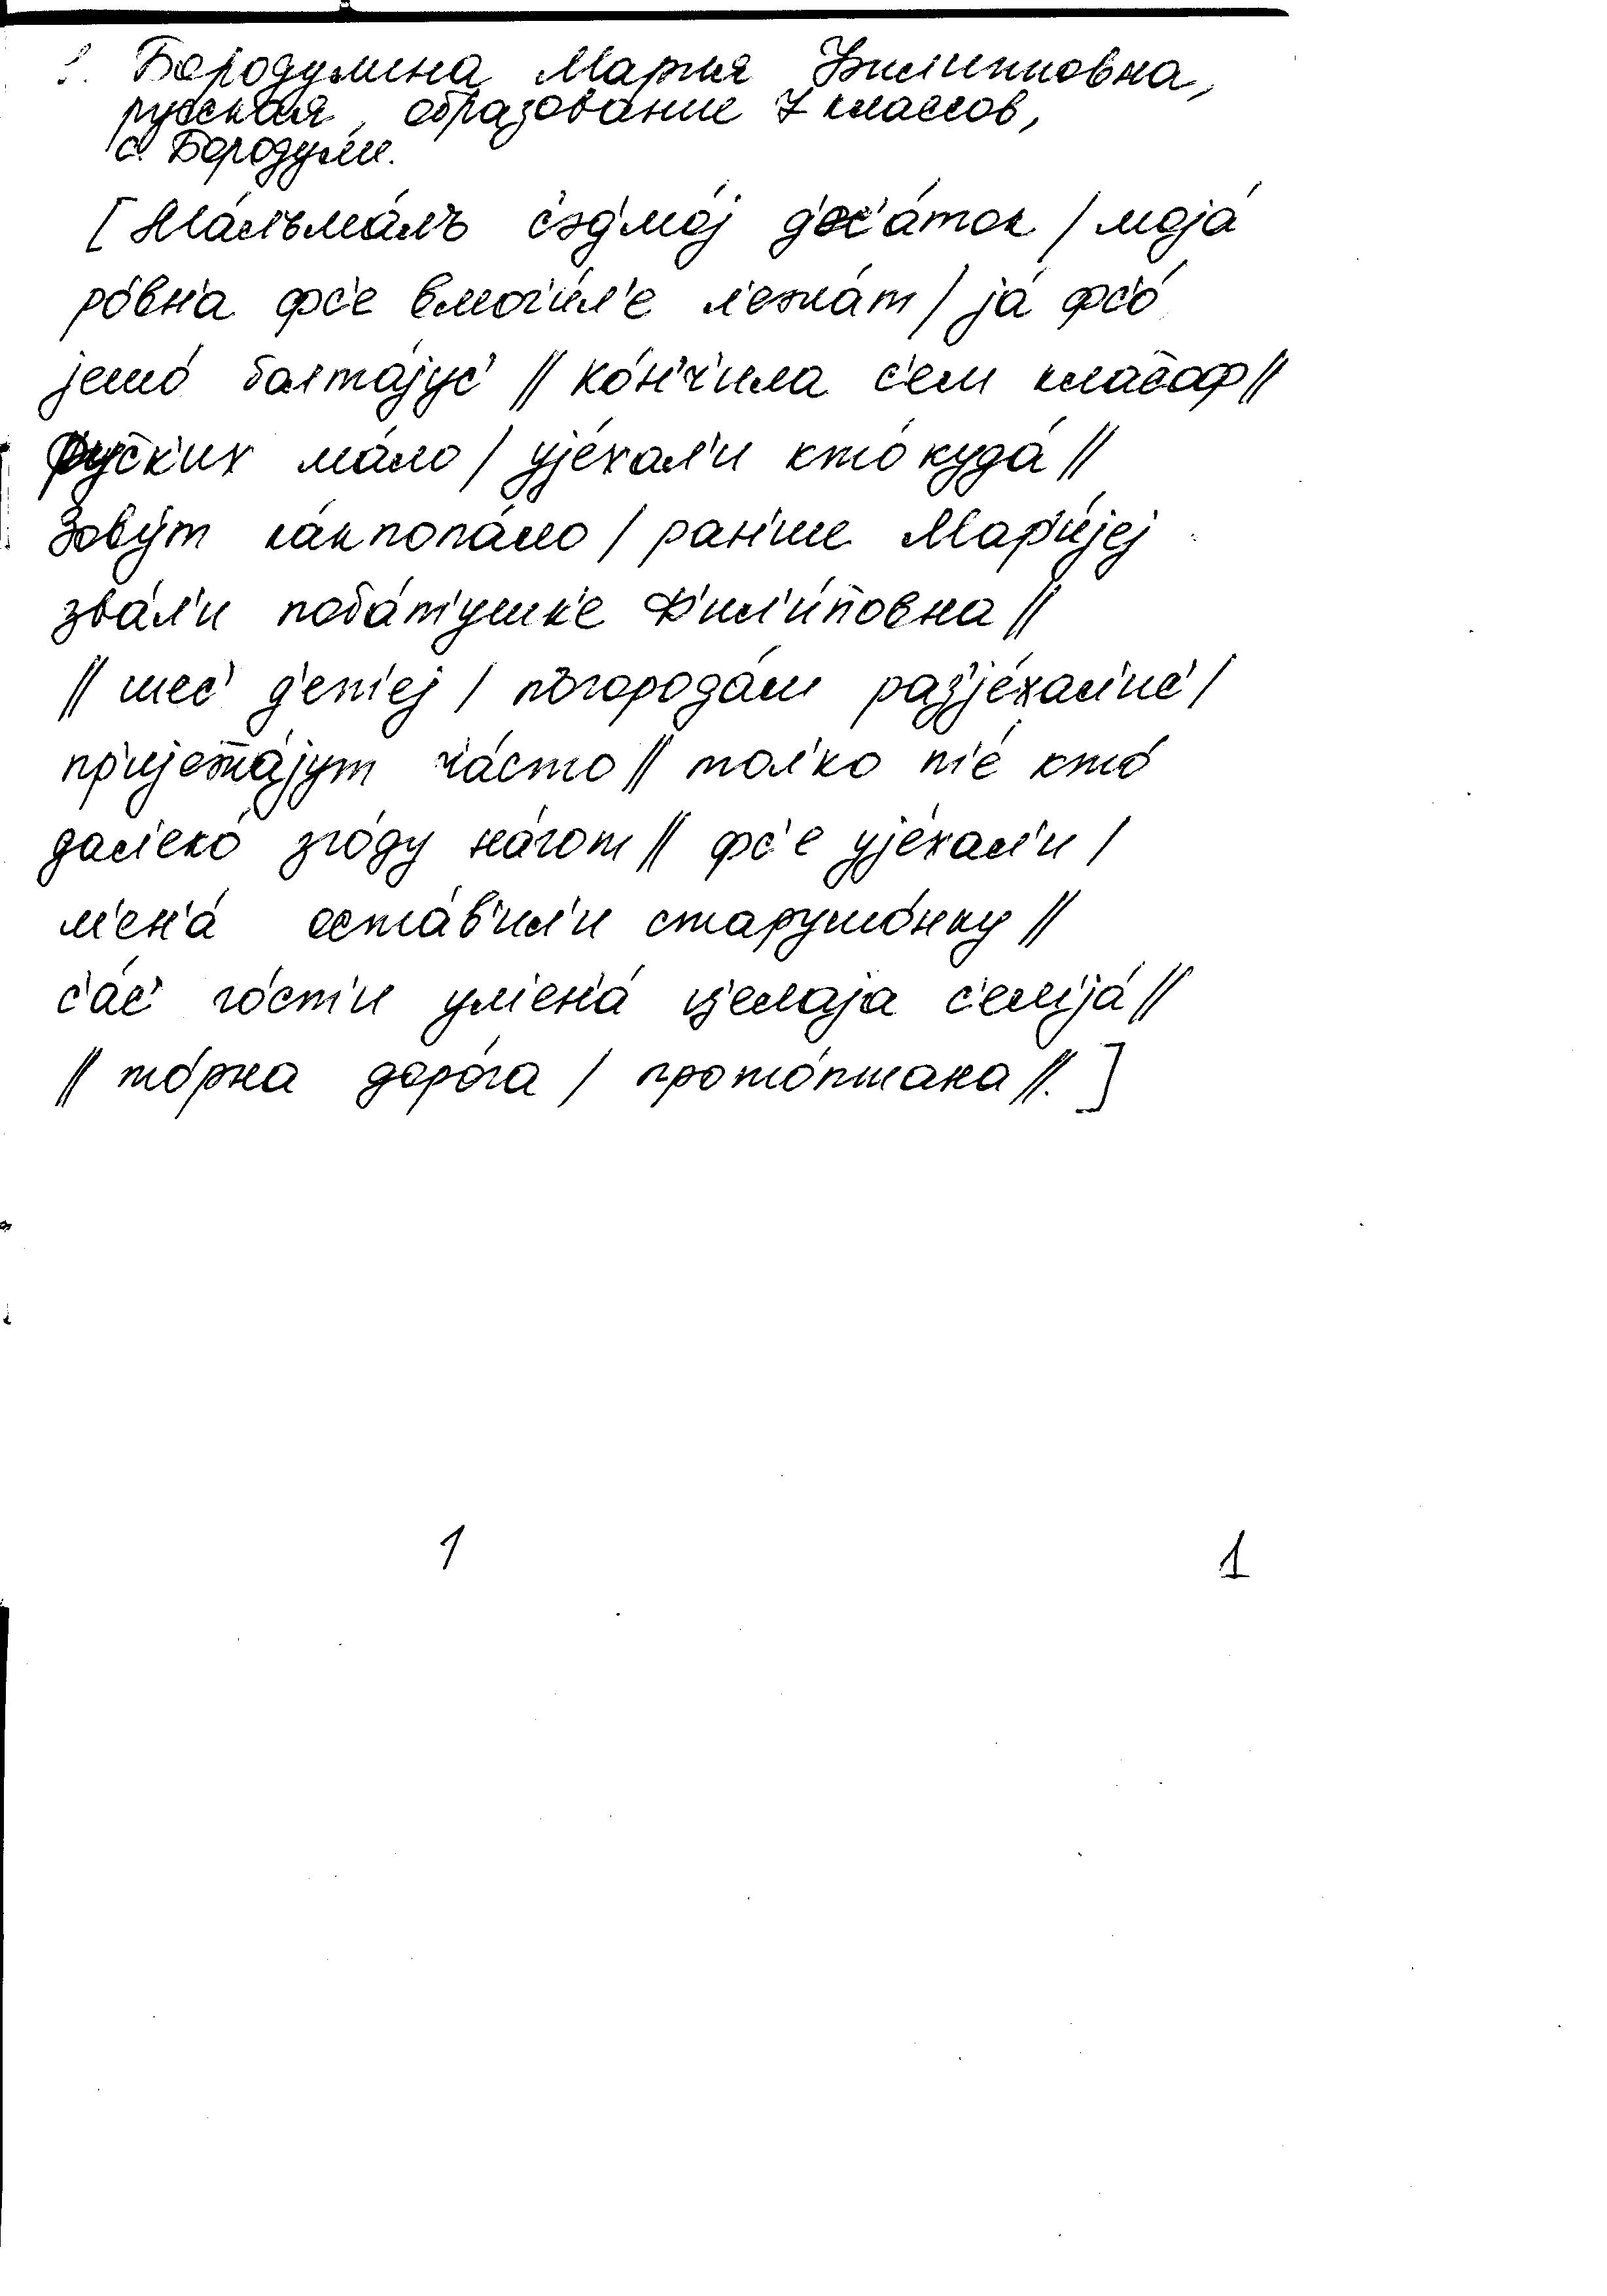 1. Бородулина Мария Филипповна,
русская, образование 7 классов,
с. Бородули.
[Ма́лъма́лъ с'эд'мо́j д'ес'а́ток / моjа́
ро́вн'а фс'е вмог'и́л'е л'ежа́т / jа́ фс'о́
jешо́ болта́jус' // ко́н'ч'ила с'ем кла́с̄оф //
Рус̄к'их ма́ло / уjе́хал'и кто́ куда́ //
Зову́т ка́кпопа́ло / ран'ше Мар'и́jеj
зва́л'и поба́т'ушк'е Ф'ил'и́п̄овна //
// шес' д'ет'еj / погорода́м раз'jе́хал'ис' /
пр'иjежа́jут ча́сто // тол'ко т'е́ кто́
дал'еко́ зго́ду на́гот // фс'е уjе́хал'и /
м'ен'а́ оста́в'ил'и старушо́нку //
с'а́с' го́ст'и ум'ен'а́ ц'елаjа с'емjа́ //
// то́рна доро́га / прото́птана //. ]
1 1